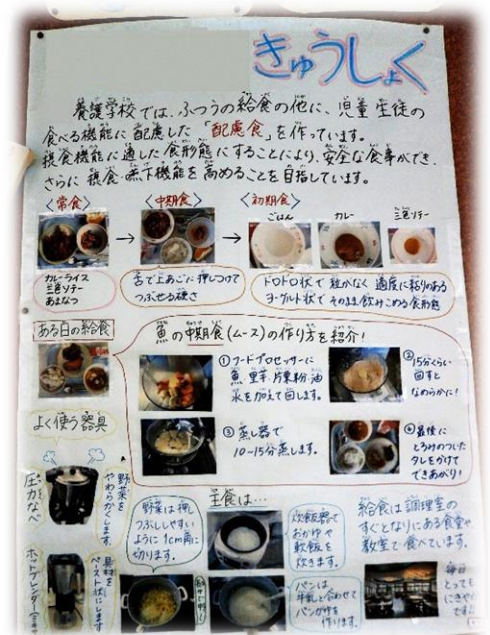 きゅうしょく
養護学校では、ふつうの給食の他に、児童 生徒の
食べる機能に配慮した「配慮食」を作っています。
摂食機能に適した食形態にすることにより、安全な食事ができ、
さらに摂食・嚥下機能を高めることを目指しています。
〈常食〉
→
〈中期食〉
→
〈初期食〉
ごはん
カレー
三色ソテー
カレーライス
三色ソテー
あまなつ
舌で上あごに押しつけて
つぶせる硬さ
ドロドロ状で粒がなく 適度に粘りのある
ヨーグルト状で そのまま飲みこめる食形態
ある日の給食
魚の中期食(ムース)の作り方を紹介!
①フードプロセッサーに
魚・里芋・片栗粉・油
水を加えて回します。
②15分くらい
回すと
なめらかに!
③蒸し器で
10~15分蒸します。
④最後に
とろみのついた
タレをかけて
できあがり!
よく使う器具
圧力なべ
野菜を
やわらかくします
ホットブレンダー
食材を
ペースト状にします
主食は…
野菜は押し
つぶししやすい
ように1cm角に
切ります。
炊飯器で
おかゆや
軟飯を
炊きます。
パンは
牛乳と合わせて
パンがゆを
作ります。
給食は調理室の
すぐとなりにある食堂や
教室で食べています。
毎日
とっても
にぎやか
です!!